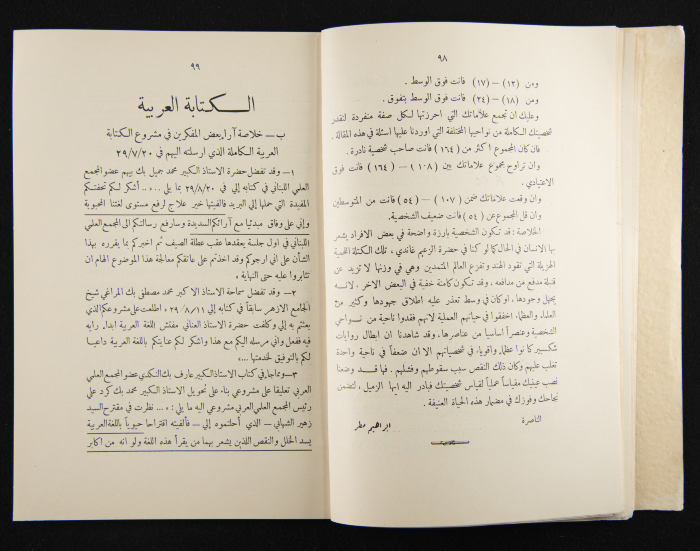 ٩٨
ومن (١٢) — (١٧) فانت فوق الوسط .
ومن (١٨) — (٢٤) فانت فوق الوسط بتفوق .
وعليك ان تجمع علاماتك التي احرزتها لكل صفة منفردة لتقدر
شخصيتك الكاملة من نواحيها المختلفة التي اوردنا عليها اسئلة في هذه المقالة .
فان كان المجموع اكثر من (١٦٤) فانت صاحب شخصية نادرة .
وان تراوح مجموع علاماتك بين (١٠٨) — (١٦٤) فانت فوق
الاعتيادي .
وان وقعت علاماتك ضمن (١٠٧) — (٥٤) فانت من المتوسطين
وان قل المجموع عن (٥٤) فانت ضعيف الشخصية.
الخلاصة : قد تكون الشخصية بارزة واضحة في بعض الافراد يشعر
بها الانسان في الحال كما لو كنا في حضرة الزعيم غاندي ، تلك الكتلة اللحمية
الهزيلة التي تقود الهند وتفزع العالم المتمدين وهي في وزنها لا تزيد عن
قنبلة مدفع من مدافعه . وقد تكون كامنة خفية في البعض الاخر . لانه
يجهل وجودها ، اوكان في وسط تعذر عليه اطلاق جهودها وكثير من
العلماء والعظماء اخفقوا في حياتهم العملية لانهم فقدوا ناحية من نواحي
الشخصية وعنصراً اساسيا من عناصرها. وقد شاهدنا ان ابطال روايات
شكسبير كانوا عظماء واقوياء في شخصياتهم الا ان ضعفاً في ناحية واحدة
تغلب عليهم وكان ذلك النقص سبب سقوطهم وفشلهم . فها قد وضعنا
نصب عينيك مقياساً عملياً لقياس شخصيتك فبادر اليه ايها الزميل ، لتضمن
نجاحك وفوزك في مضمار هذه الحياة العنيفة .
الناصرة
ابراهيم مطر
٩٩
الكتابة العربية
ب — خلاصة آراء بعض المفكرين في مشروع الكتابة
العربية الكاملة الذي ارسلته اليهم في ٢٩/٧/٢٠
١— وقد تفضل حضرة الاستاذ الكبير محمد جميل بك بيهم عضو المجمع
العلمي اللبناني في كتابه إلي في ٢٩/٨/٢٠ بما يلي ... « .. أشكر لكم تحفتكم
المفيدة التي حملها إلي البريد فالفيتها خير علاج لرفع مستوى لغتنا المحبوبة
وإني على وفاق مبدئيا مع آرائكم السديدة وسارفع رسالتكم الى المجمع العلمي
اللبناني في اول جلسة يعقدها عقب عطلة الصيف ثم اخبركم بما يقرره بهذا
الشأن على اني ارجوكم وقد اخذتم على عاتقكم معالجة هذا الموضوع الهام ان
تثابروا عليه حتى النهاية »
٢— وقد تفضل سماحة الاستاذ الاكبر محمد مصطفى بك المراغي شيخ
الجامع الازهر سابقاً في كتابه إلي ٢٩/٨/١١ « اطلعت على مشروعكم الذي
بعثتم به إلي وكلفت حضرة الاستاذ العناني مفتش اللغة العربية ابداء رايه
فيه ففعل واني مرسله اليكم مع هذا واشكر لكم عنايتكم باللغة العربية داعيا
لكم بالتوفيق لخدمتها ...»
٣— ومما جاء في كتاب الاستاذ الكبير عارف بك النكدي عضو المجمع العلمي
العربي تعليقا على مشروعي بناء على تحويل الاستاذ الكبير محمد بك كرد علي
رئيس المجمع العلمي العربي مشروعي اليه ما يلي : « ... نظرت في مقترح السيد
زهير الشهابي — الذي أحلتموه إلي — فألفيته اقتراحا حيوياً باللغة العربية
يسد الخلل والنقص اللذين يشعر بهما من يقرأ هذه اللغة ولو انه من اكابر